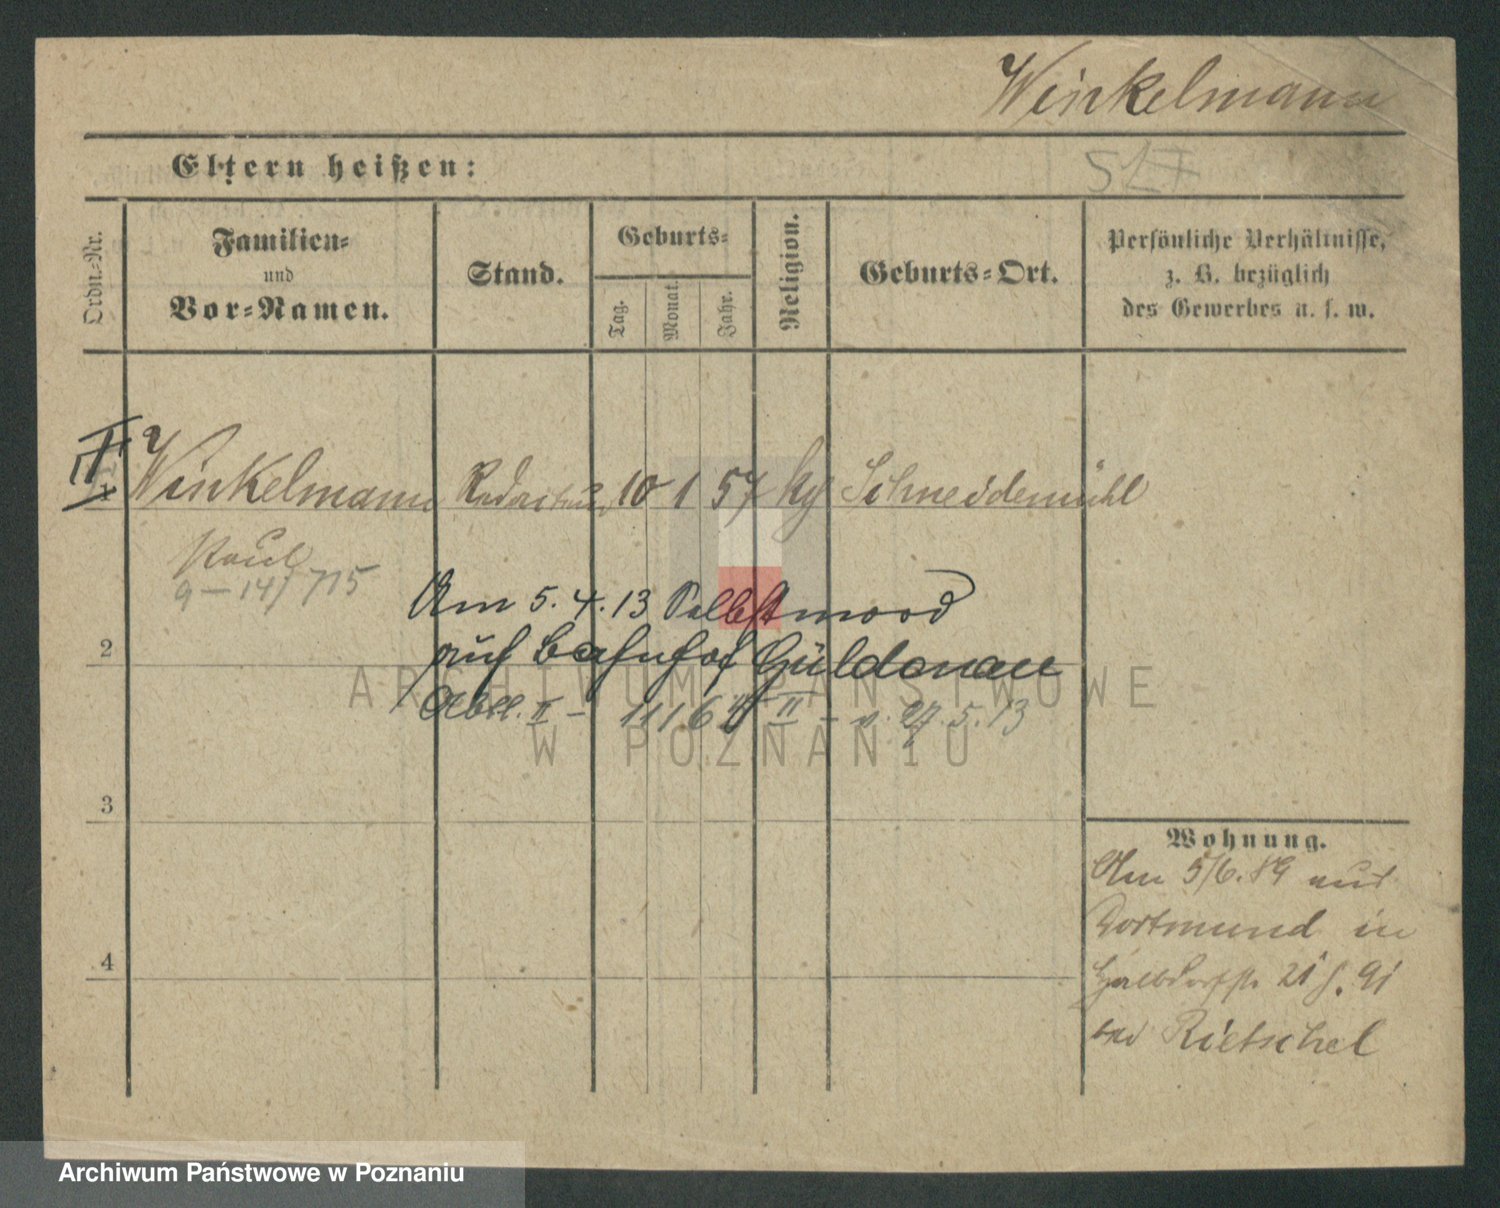 Winkelmann
Eltern heißen:
517
Ordn.-Nr.
Familien-
und
Vor-Namen.
Stand.
Geburts-
Tag.
Monat.
Jahr.
Religion.
Geburts-Ort.
Persönliche Verhältnisse,
z. B. bezüglich
des Gewerbes u. s. w.
Winkelmann Redacteur 10 1 57 Schneidemühl
Paul
9-14/715
Am 5.4.13 Selbstmord
2
auf Bahnhof Güldenau
Abtl. II - II - v. 27.5.13
ARCHIWUM PAŃSTWOWE
W POZNANIU
3
Wohnung.
Am 5/6.89 aus
Dortmund in
4
21
bei Rietschel
Archiwum Państwowe w Poznaniu